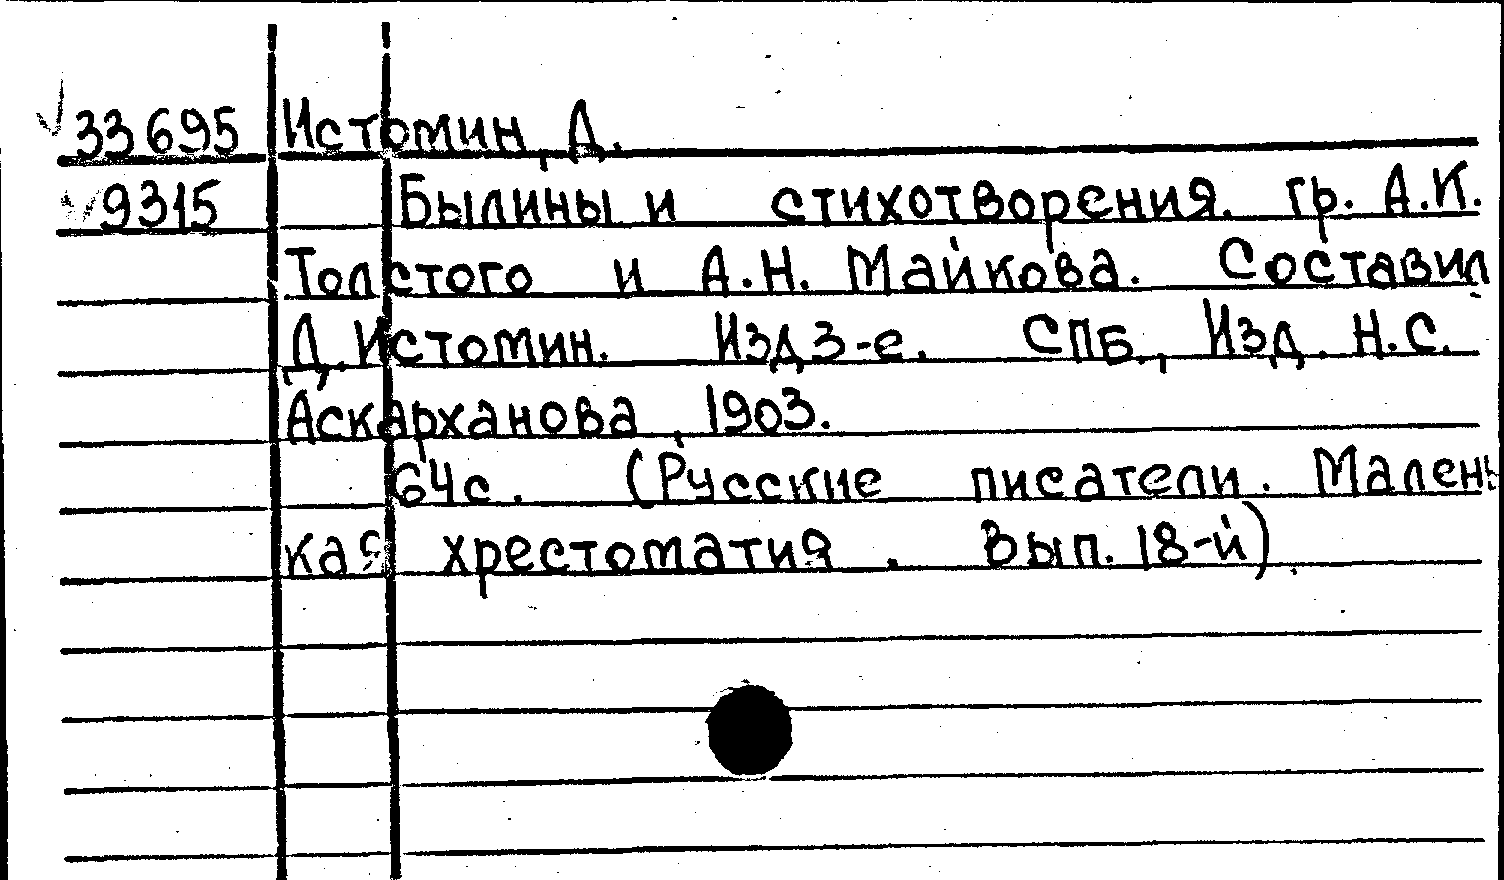 33695 Истомин, Д.
9315 Былины и стихотворения. гр. А.К.
Толстого и А.Н. Майкова. Составил
Д. Истомин. Изд 3-е. СПБ., Изд. Н.С.
Аскарханова, 1903.
64с. (Русские писатели. Малень
кая хрестоматия. Вып. 18-й).